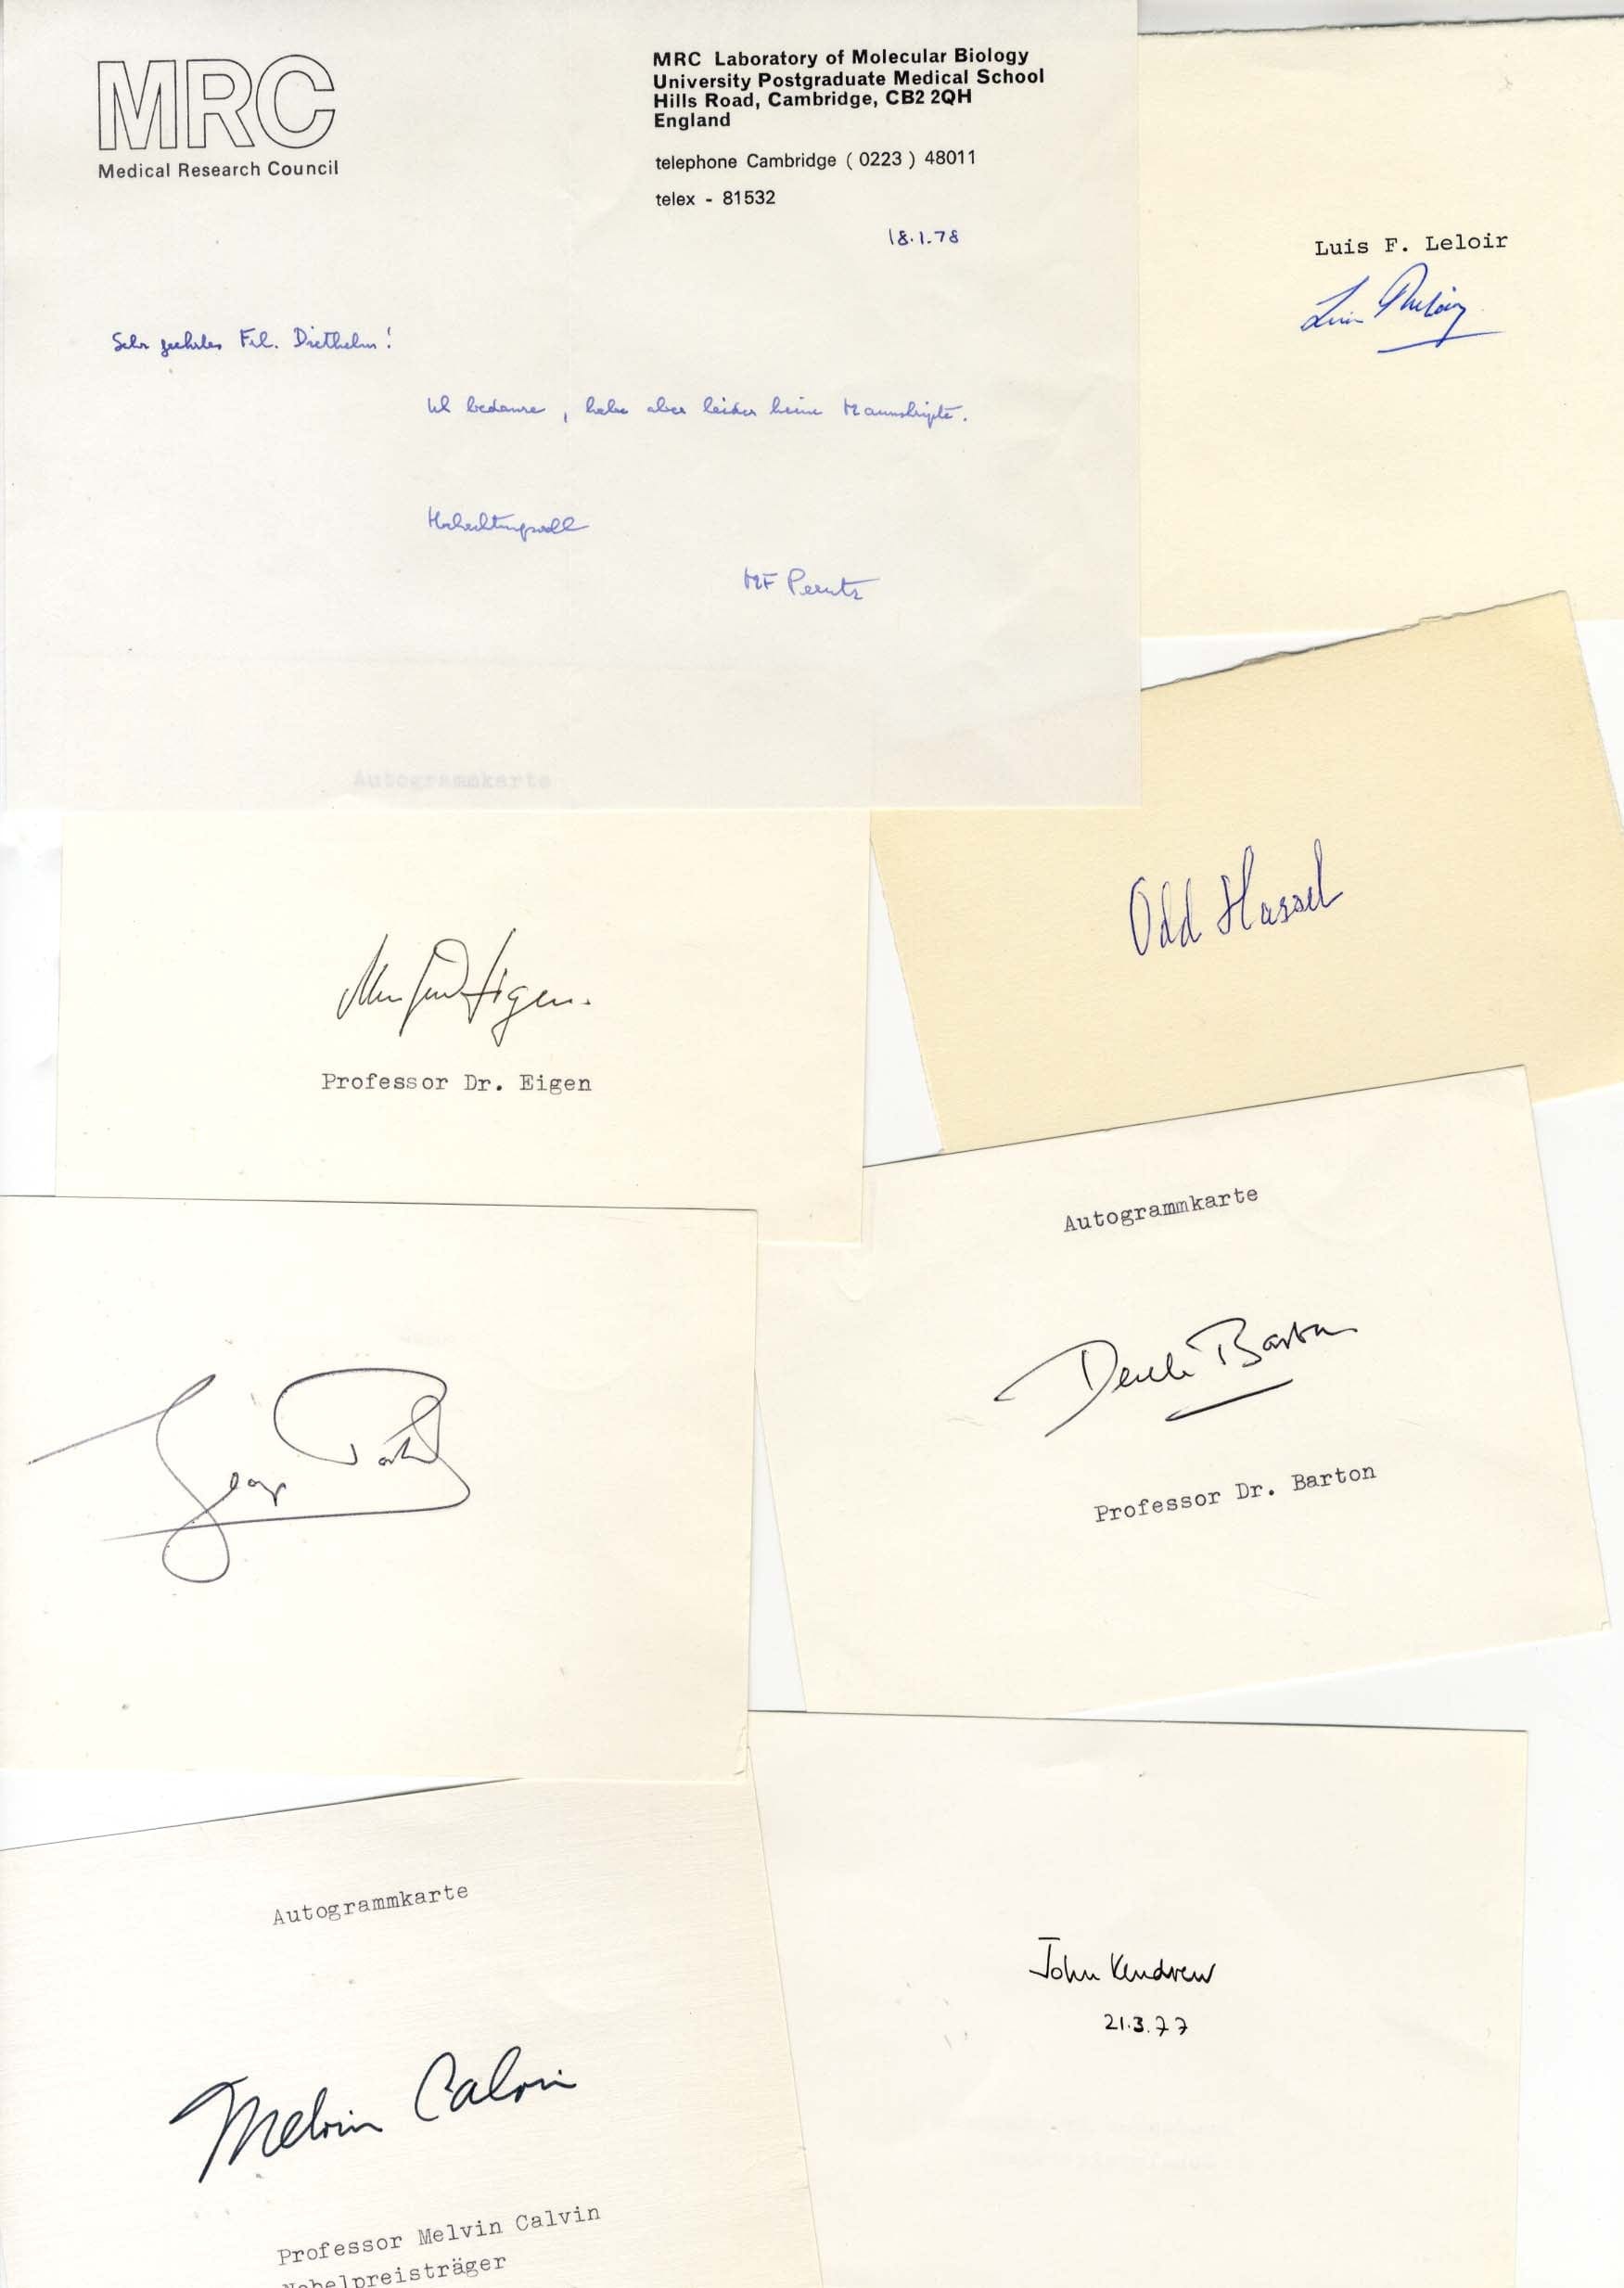 MRC
Medical Research Council
MRC Laboratory of Molecular Biology
University Postgraduate Medical School
Hills Road, Cambridge, CB2 2QH
England
telephone Cambridge ( 0223 ) 48011
telex - 81532
18.1.78
Sehr geehrtes Frl. Diethelm!
Ich bedaure, habe aber leider keine Manuskripte.
Hochachtungsvoll
MF Perutz
Autogrammkarte
Luis F. Leloir
Luis F Leloir
Odd Hassel
Manfred Eigen.
Professor Dr. Eigen
Autogrammkarte
Derek Barton
Professor Dr. Barton
George Porter
Autogrammkarte
Melvin Calvin
Professor Melvin Calvin
Nobelpreisträger
John Kendrew
21.3.77